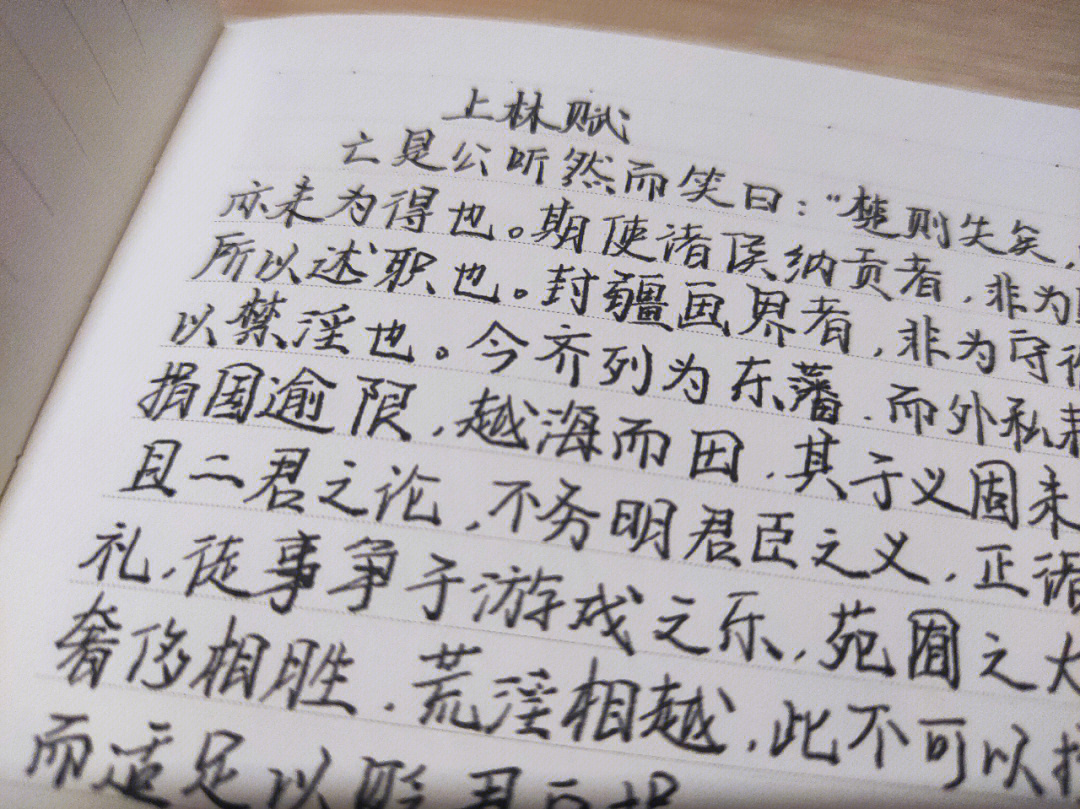 上林赋
亡是公听然而笑曰：“楚则失矣，
亦未为得也。期使诸侯纳贡者，非为
所以述职也。封疆画界者，非为守
以禁淫也。今齐列为东藩，而外私
捐国逾限，越海而田，其于义固未
且二君之论，不务明君臣之义，正诸
礼，徒事争于游戏之乐，苑囿之大
奢侈相胜，荒淫相越，此不可以
而适足以